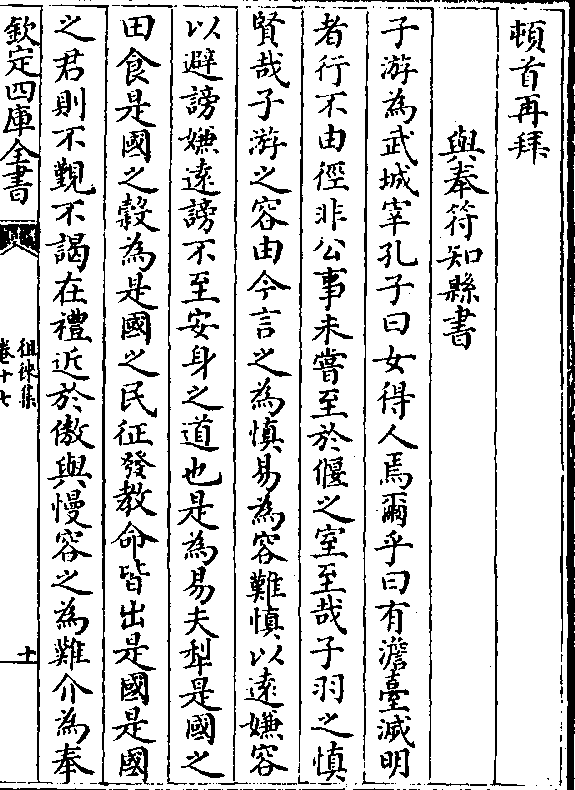 頓首再拜
與奉符知縣書
子游為武城宰孔子曰女得人焉爾乎曰有澹臺滅明
者行不由徑非公事未嘗至於偃之室至哉子羽之慎
賢哉子游之容由今言之為慎易為容難慎以遠嫌容
以避謗嫌遠謗不至安身之道也是為易夫犁是國之
田食是國之穀為是國之民征發教命皆出是國是國
之君則不覲不謁在禮近於傲與慢容之為難介為奉
欽定四庫全書
徂徠集
卷十七
十